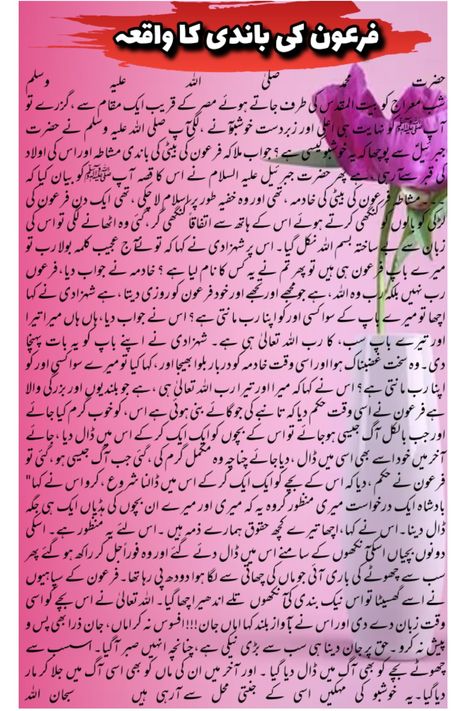 فرعون کی باندی کا واقعہ
حضرت محمد صلیٰ اللہ علیہ وسلم
شب معراج کو بیت المقدس کی طرف جاتے ہوئے مصر کے قریب ایک مقام سے ،گزرے تو
آپ ﷺ کو نہایت ہی اعلیٰ اور زبردست خوشبو آنے ،لگی آپ صلی اللہ علیہ وسلم نے حضرت
جبرئیل سے پوچھا کہ یہ خوشبو کیسی ہے؟ جواب ملا کہ فرعون کی بیٹی کی باندی مشاطہ اور اس کی اولاد
کی قبر سے آرہی ہے پھر حضرت جبرئیل علیہ السلام نے اس کا قصہ آپ ﷺ کو بیان کیا کہ
مشاطہ فرعون کی بیٹی کی خادمہ ،تھی اور وہ خفیہ طور پر اسلام لا چکی ،تھی ایک دن فرعون کی
لڑکی کو بالوں کی کنگھی کرتے ہوئے اس کے ہاتھ سے اتفاقا کنگھی گر ،گئی وہ اٹھانے لگی تو اس کی
زبان سے بے ساختہ بسم اللہ نکل گیا۔ اس پر شہزادی نے کہا کہ تو نے آج عجیب کلمہ بولا رب تو
میرے باپ فرعون ہی ہیں تو پھر تم نے یہ کس کا نام لیا ہے؟ خادمہ نے جواب دیا، فرعون
رب نہیں بلکہ رب وہ اللہ ،ہے جو مجھے اور تجھے اور خود فرعون کو روزی دیتا ،ہے شہزادی نے کہا
اچھا تو میرے باپ کے سوا کسی اور کو اپنا رب مانتی ہے؟ اس نے جواب دیا، ہاں ہاں میرا تیرا
اور تیرے باپ سب، کا رب اللہ تعالیٰ ہی ہے۔ شہزادی نے اپنے باپ کو یہ بات پہنچا
دی۔ وہ سخت غضبناک ہوا اور اسی وقت خادمہ کو دربار بلوا بھیجا اور ،کہا کیا تو میرے سوا کسی اور کو
اپنا رب مانتی ہے؟ اس نے کہا کہ میرا اور تیرا رب اللہ تعالیٰ ہی ،ہے جو بلندیوں اور بزرگی والا
ہے فرعون نے اسی وقت حکم دیا کہ تانبے کی جو گائے بنی ہوئی ہے اس ،کو خوب گرم کیا جائے
اور جب بالکل آگ جیسی ہو جائے تو اس کے بچوں کو ایک ایک کر کے اس میں ڈال دیا ،جائے
آخر میں خود اسے بھی اسی میں ڈال ،دیا جائے چنانچہ وہ مکمل گرم کی ،گئی جب آگ جیسی ہو ،گئی تو
فرعون نے حکم ،دیا کہ اس کے بچے کو ایک ایک کر کے اس میں ڈالنا شروع ،کرو اس نے کہا"
بادشاہ ایک درخواست میری منظور کرو وہ یہ کہ میری اور میرے ان بچوں کی ہڈیاں ایک ہی جگہ
ڈال دینا۔ اس نے کہا، اچھا تیرے کچھ حقوق ہمارے ذمہ ہیں ۔اس لئے یہ منظور ہے۔ اسکی
دونوں بچیاں اسکی آنکھوں کے سامنے اس میں ڈال دئے گئے اور وہ فورا جل کر راکھ ہو گئے پھر
سب سے چھوٹے کی باری آئی جو ماں کی چھاتی سے لگا ہوا دودھ پی رہا تھا۔ فرعون کے سپاہیوں
نے اسے گھسیٹا تو اس نیک بندی کی آنکھوں تلے اندھیرا چھا گیا۔ اللہ تعالیٰ نے اس بچے کو اسی
وقت زبان دے دی اور اس نے بآواز بلند کہا اماں جان!!!افسوس نہ کر اماں، جان ذرا بھی پس و
پیش نہ کرو۔ حق پر جان دینا ہی سب سے بڑی نیکی ہے، چنانچہ انہیں صبر آگیا۔ اسے سب سے
چھوٹے بچے کو بھی آگ میں ڈال دیا گیا ۔ اور آخر میں ان کی ماں کو بھی اسی آگ میں جلا کر مار
دیا گیا۔ یہ خوشبو کی مہکیں اسی کے جنتی محل سے آرہی ہیں سبحان اللہ